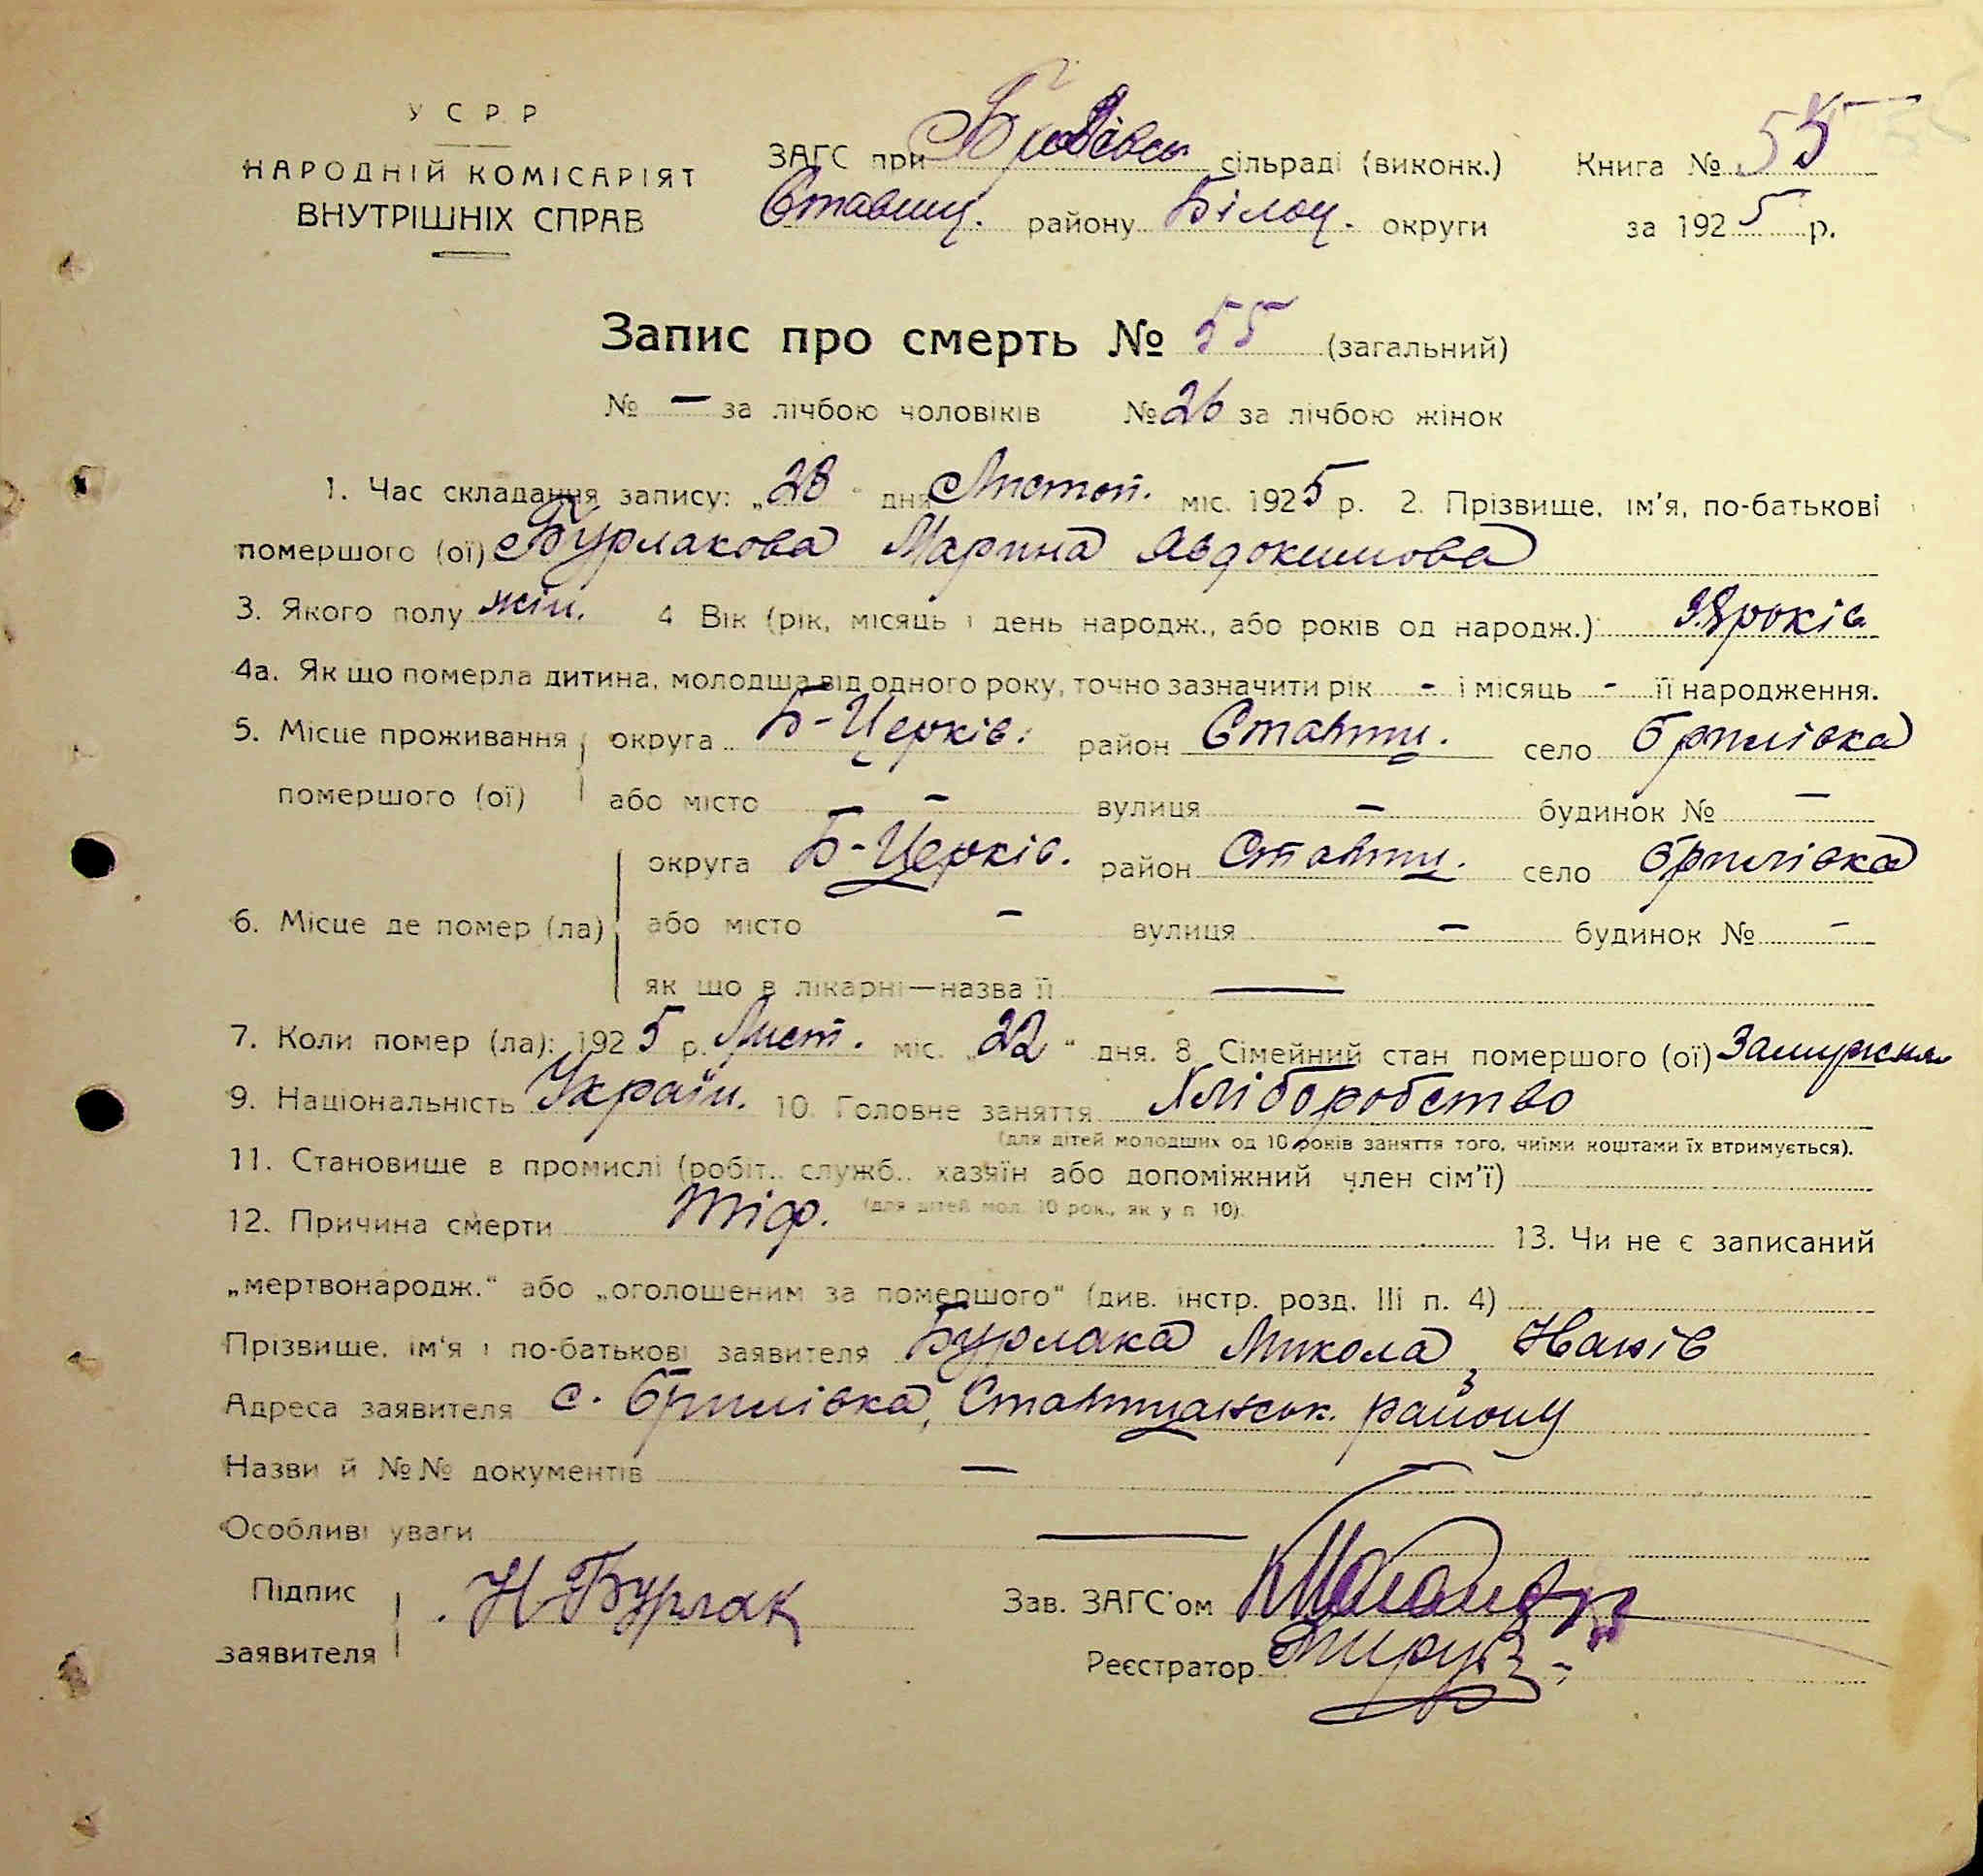 У С Р Р
НАРОДНІЙ КОМІСАРІЯТ
ВНУТРІШНІХ СПРАВ
ЗАГС при сільраді (виконк.) Книга № 55
Ставищ. району Білоц. округи за 1925 р.
Запис про смерть № 55 (загальний)
№ — за лічбою чоловіків № 26 за лічбою жінок
1. Час складання запису: „28" дня Листоп. міс. 1925 р. 2. Прізвище, ім'я, по-батькові
помершого (ої) Бурлакова Марина Явдокимова
3. Якого полу жін. 4 Вік (рік, місяць і день народж., або років од народж.) років
4а. Як що померла дитина, молодша від одного року, точно зазначити рік - і місяць - її народження.
5. Місце проживання округа Б-Церків. район Ставищ. село Брилівка
помершого (ої) або місто - вулиця - будинок № -
округа Б-Церків. район Ставищ. село Брилівка
6. Місце де помер (ла) або місто - вулиця - будинок № -
як що в лікарні—назва її —
7. Коли помер (ла): 1925 р. Лист. міс. „22" дня. 8 Сімейний стан помершого (ої) Замужня
9. Національність Україн. 10. Головне заняття Хліборобство
(для дітей молодших од 10 років заняття того, чиїми коштами їх втримується).
11. Становище в промислі (робіт., служб., хазяїн або допоміжний член сім'ї)
(для дітей мол. 10 рок., як у п 10).
12. Причина смерти Тіф. 13. Чи не є записаний
„мертвонародж." або „оголошеним за помершого" (див. інстр. розд. III п. 4)
Прізвище, ім'я і по-батькові заявителя Бурлака Микола
Адреса заявителя с. Брилівка, Ставищанськ. району
Назви й №№ документів —
Особливі уваги —
Підпис
заявителя Н Бурлак
Зав. ЗАГС'ом
Реєстратор